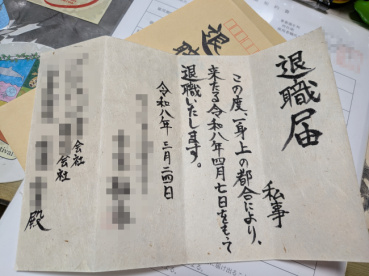 退職届
私事
この度、一身上の都合により、
来たる令和八年四月七日をもって
退職いたします。
令和八年 三月二四日
会社
会社
殿
退職